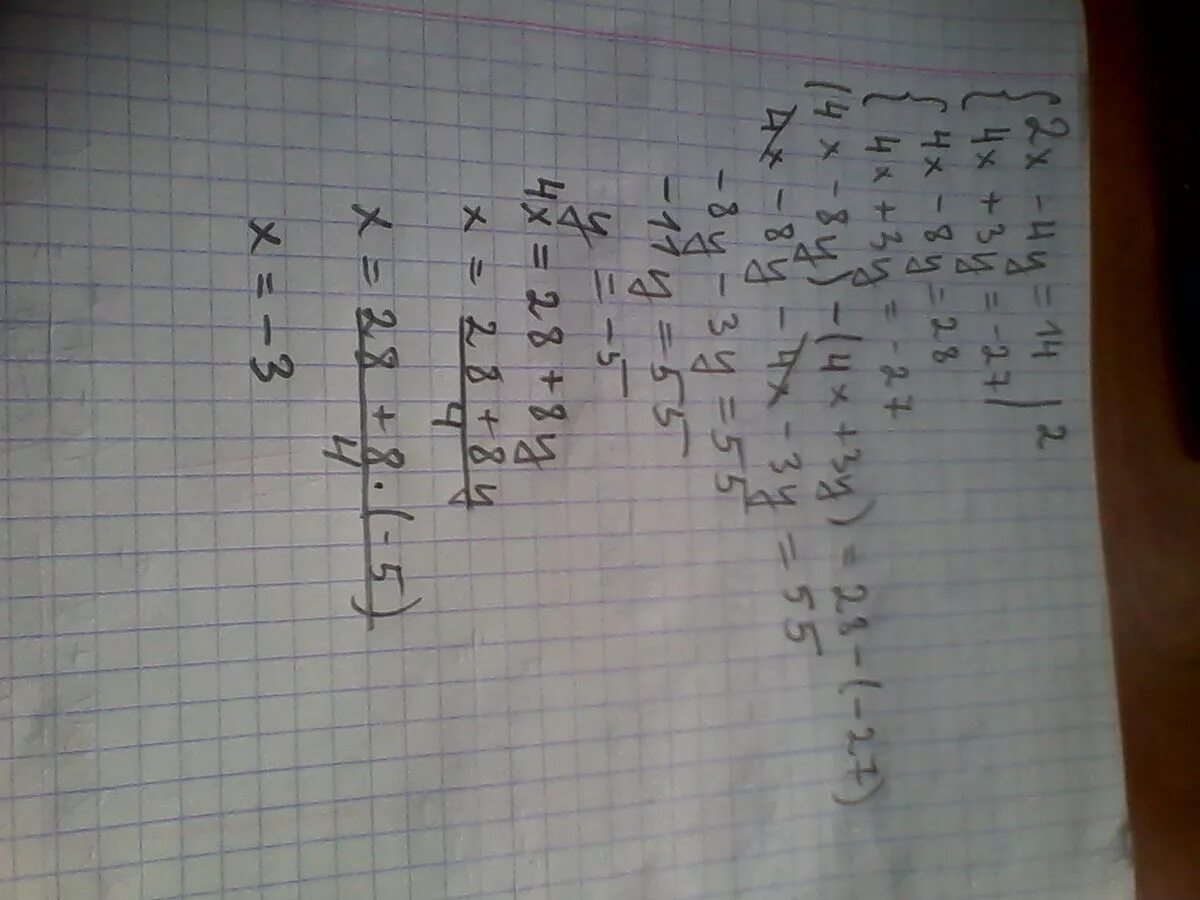 { 2x - 4y = 14
{ 4x + 3y = -27 | 2
{ 4x - 8y = 28
{ 4x + 3y = -27
(4x - 8y) - (4x + 3y) = 28 - (-27)
4x - 8y - 4x - 3y = 55
-8y - 3y = 55
-11y = 55
y = -5
4x = 28 + 8y
x = (28 + 8y)/4
x = (28 + 8·(-5))/4
x = -3